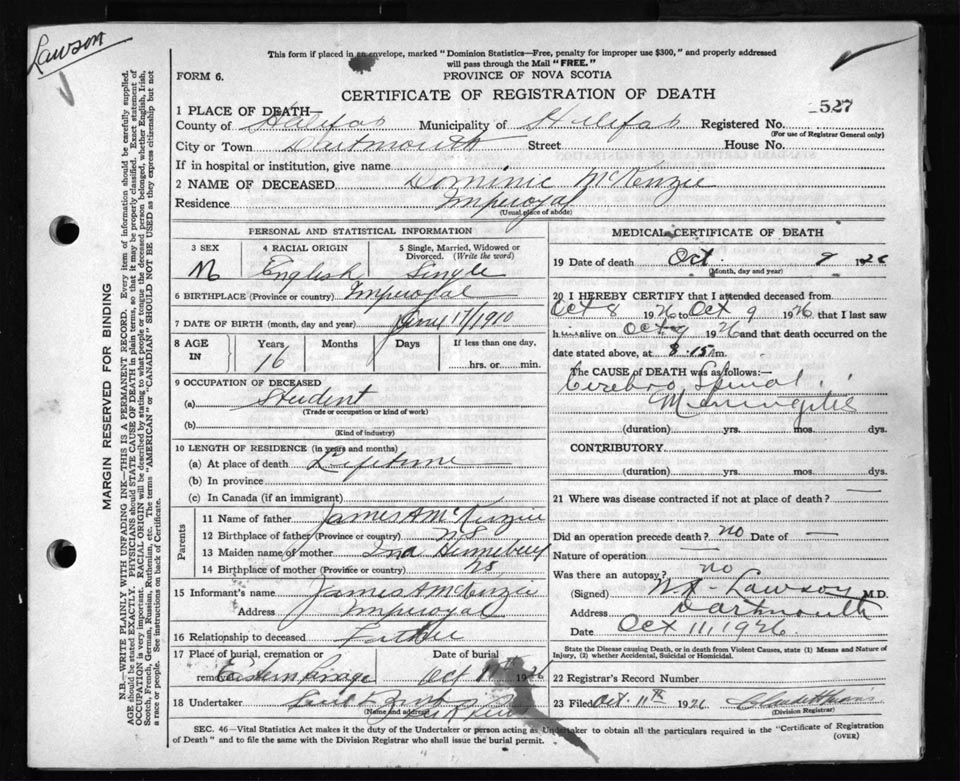 Lawson
This form if placed in an envelope, marked "Dominion Statistics—Free, penalty for improper use $300," and properly addressed
will pass through the Mail "FREE."
FORM 6.
PROVINCE OF NOVA SCOTIA
CERTIFICATE OF REGISTRATION OF DEATH
527
1 PLACE OF DEATH—
County of Halifax Municipality of Halifax Registered No.
(For use of Registrar General only)
City or Town Dartmouth Street House No.
If in hospital or institution, give name
2 NAME OF DECEASED Dominic McKenzie
Residence Imperoyal
(Usual place of abode)
PERSONAL AND STATISTICAL INFORMATION
3 SEX 4 RACIAL ORIGIN 5 Single, Married, Widowed or
Divorced. (Write the word)
M English Single
6 BIRTHPLACE (Province or country) Imperoyal
7 DATE OF BIRTH (month, day and year) June 17/1910
8 AGE IN Years Months Days If less than one day,
16 hrs. or min.
9 OCCUPATION OF DECEASED
(a) Student
(Trade or occupation or kind of work)
(b)
(Kind of industry)
10 LENGTH OF RESIDENCE (in years and months)
(a) At place of death Lifetime
(b) In province
(c) In Canada (if an immigrant)
Parents
11 Name of father James A McKenzie
12 Birthplace of father (Province or country) NS
13 Maiden name of mother Ina
14 Birthplace of mother (Province or country) NS
15 Informant's name James A McKenzie
Address Imperoyal
16 Relationship to deceased Father
17 Place of burial, cremation or Date of burial
removal Eastern Passage Oct 1926
18 Undertaker
(Name and address)
MEDICAL CERTIFICATE OF DEATH
19 Date of death Oct. 9 1926
(Month, day and year)
20 I HEREBY CERTIFY that I attended deceased from
Oct 8 1926 to Oct 9 1926, that I last saw
him alive on Oct 9 1926 and that death occurred on
date stated above, at 8.15 m.
The CAUSE OF DEATH was as follows:—
Cerebro Spinal
Meningitis
(duration) yrs. mos. dys.
CONTRIBUTORY.
(duration) yrs. mos. dys.
21 Where was disease contracted if not at place of death? —
Did an operation precede death? no Date of —
Nature of operation
Was there an autopsy? no
(Signed) Lawson M.D.
Address Dartmouth
Date Oct 11, 1926
State the Disease causing Death, or in death from Violent Causes, state (1) Means and Nature of
Injury, (2) whether Accidental, Suicidal or Homicidal.
22 Registrar's Record Number
23 Filed Oct. 11th 1926
(Division Registrar)
SEC. 46—Vital Statistics Act makes it the duty of the Undertaker or person acting as Undertaker to obtain all the particulars required in the "Certificate of Registration
of Death" and to file the same with the Division Registrar who shall issue the burial permit.
(OVER)
MARGIN RESERVED FOR BINDING
N.B.—WRITE PLAINLY WITH UNFADING INK—THIS IS A PERMANENT RECORD. Every item of information should be carefully supplied.
AGE should be stated EXACTLY. PHYSICIANS should STATE CAUSE OF DEATH in plain terms, so that it may be properly classified. Exact statement of
OCCUPATION is very important. RACIAL ORIGIN will be described by stating to what people or tongue the deceased person belonged, whether English, Irish,
Scotch, French, German, Russian, Ruthenian, etc. The terms "AMERICAN" or "CANADIAN" SHOULD NOT BE USED as they express citizenship but not
a race or people. See instructions on back of Certificate.